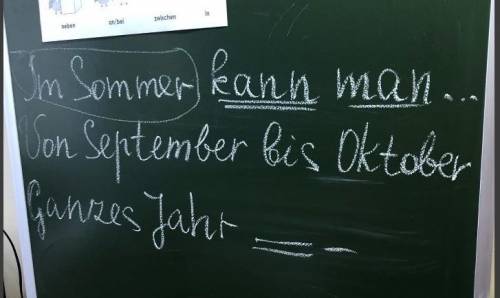 neben an/bei zwischen in
Im Sommer kann man...
Von September bis Oktober
Ganzes Jahr